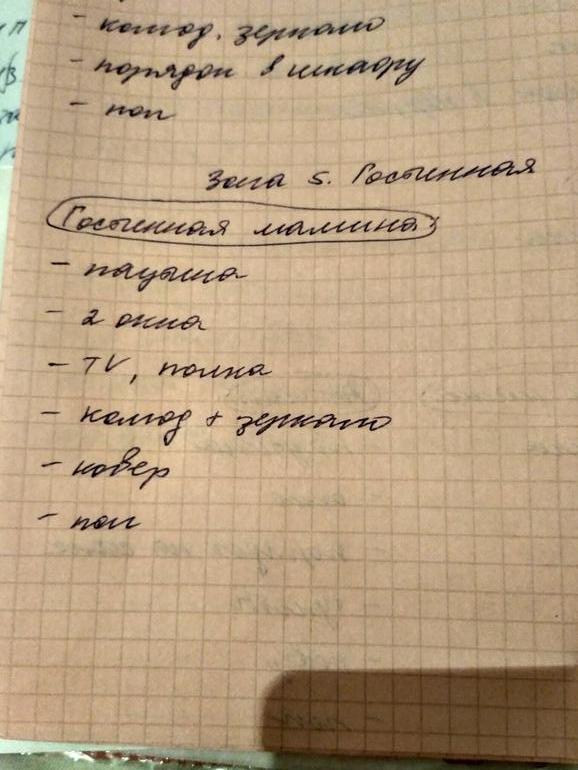 - комод. зеркало
- порядок в шкафу
- пол
Зона 5. Гостинная
Гостинная мамина:
- паутина
- 2 окна
- TV, полка
- комод + зеркало
- ковер
- пол